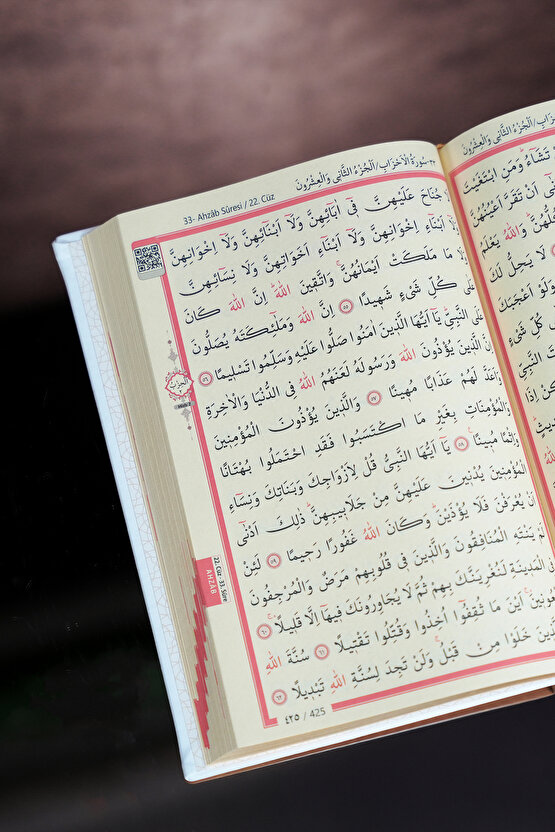 33- Ahzâb Sûresi / 22. Cüz
٣٣-سُورَةُ الْاَحْزَابِ/اَلْجُزْءُ الثَّانِى وَالْعِشْرُونَ
جُنَاحَ عَلَيْهِنَّ فٖٓى اٰبَٓائِهِنَّ وَلَٓا اَبْنَٓائِهِنَّ وَلَٓا اِخْوَانِهِنَّ
اَبْنَٓاءِ اِخْوَانِهِنَّ وَلَٓا اَبْنَٓاءِ اَخَوَاتِهِنَّ وَلَا نِسَٓائِهِنَّ
مَا مَلَكَتْ اَيْمَانُهُنَّ وَاتَّقٖينَ اللّٰهَ اِنَّ اللّٰهَ كَانَ
عَلٰى كُلِّ شَىْءٍ شَهٖيدًا ٥٥ اِنَّ اللّٰهَ وَمَلٰٓئِكَتَهُ يُصَلُّونَ
عَلَى النَّبِىِّ يَٓا اَيُّهَا الَّذٖينَ اٰمَنُوا صَلُّوا عَلَيْهِ وَسَلِّمُوا تَسْلٖيمًا ٥٦
اِنَّ الَّذٖينَ يُؤْذُونَ اللّٰهَ وَرَسُولَهُ لَعَنَهُمُ اللّٰهُ فِى الدُّنْيَا وَالْاٰخِرَةِ
وَاَعَدَّ لَهُمْ عَذَابًا مُهٖينًا ٥٧ وَالَّذٖينَ يُؤْذُونَ الْمُؤْمِنٖينَ
وَالْمُؤْمِنَاتِ بِغَيْرِ مَا اكْتَسَبُوا فَقَدِ احْتَمَلُوا بُهْتَانًا
وَاِثْمًا مُبٖينًا ٥٨ يَٓا اَيُّهَا النَّبِىُّ قُلْ لِاَزْوَاجِكَ وَبَنَاتِكَ وَنِسَٓاءِ
الْمُؤْمِنٖينَ يُدْنٖينَ عَلَيْهِنَّ مِنْ جَلَابٖيبِهِنَّ ذٰلِكَ اَدْنٰٓى
اَنْ يُعْرَفْنَ فَلَا يُؤْذَيْنَ وَكَانَ اللّٰهُ غَفُورًا رَحٖيمًا ٥٩ لَئِنْ
لَمْ يَنْتَهِ الْمُنَافِقُونَ وَالَّذٖينَ فٖى قُلُوبِهِمْ مَرَضٌ وَالْمُرْجِفُونَ
فِى الْمَدٖينَةِ لَنُغْرِيَنَّكَ بِهِمْ ثُمَّ لَا يُجَاوِرُونَكَ فٖيهَٓا اِلَّا قَلٖيلًا ٦٠
اَيْنَ مَا ثُقِفُٓوا اُخِذُوا وَقُتِّلُوا تَقْتٖيلًا ٦١ سُنَّةَ اللّٰهِ
خَلَوْا مِنْ قَبْلُ وَلَنْ تَجِدَ لِسُنَّةِ اللّٰهِ تَبْدٖيلًا ٦٢
٤٢٥ / 425
22. Cüz 33. Sûre
AHZÂB
اَلْجُزْءُ الثَّانِى وَالْعِشْرُونَ
تَشَٓاءُ وَمَنِ ابْتَغَيْتَ
اَنْ تَقَرَّ اَعْيُنُهُنَّ
وَاللّٰهُ يَعْلَمُ
لَا يَحِلُّ لَكَ
وَلَوْ اَعْجَبَكَ
كُلِّ شَىْءٍ